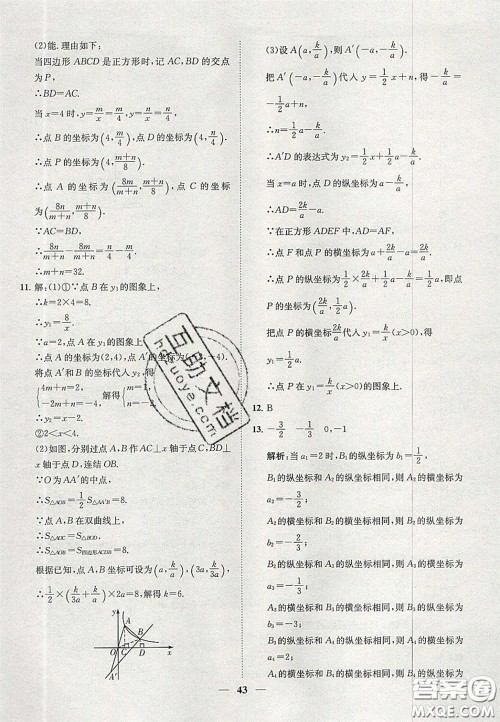 (2)能.理由如下:
当四边形 ABCD 是正方形时,记 AC,BD 的交点
为 P,
∴BD=AC.
当 x=4 时,y=m/x=m/4,y=n/x=n/4
∴点 B 的坐标为(4,m/4),点 D 的坐标为(4,n/4).
∴点 P 的坐标为(4,(m+n)/8).
∴点 A 的坐标为(8m/(m+n),(m+n)/8),点 C 的坐标
为(8n/(m+n),(m+n)/8).
∵AC=BD,
∴8n/(m+n)-8m/(m+n)=n/4-m/4.
∴m+n=32.
11. 解:(1)①∵点 B 在 y₁ 的图象上,
∴k=2×4=8.
∴y₁=8/x.
∵a=2,点 A 在 y₁ 的图象上,
∴点 A 的坐标为(2,4),点 A′ 的坐标为(-2,-4).
把点 A′ 和 B 的坐标代入 y₂,得
{4m+n=2, -2m+n=-4, 解得{m=1, n=-2.
∴y₂=x-2.
②2<x<4.
(2)如图,分别过点 A,B 作 AC⊥x 轴于点 C,BD⊥
x 轴于点 D,连结 OB.
∵O 为 AA′ 的中点,
∴S△AOB=1/2 S△AA′B=8.
∵点 A,B 在双曲线上,
∴S△AOC=S△BOD.
∴S△AOB=S四边形ACDB=8.
根据已知,点 A,B 坐标可设为(a,k/a),(3a,k/3a),
∴1/2×(k/3a+k/a)×2a=8,解得 k=6.
y A B O C D x A′
(3)设 A(a,k/a),则 A′(-a,-k/a).
把 A′(-a,-k/a)代入 y₂=1/2 x+n,得-k/a=
-1/2 a+n,
∴n=1/2 a-k/a.
∴A′D 的表达式为 y₂=1/2 x+1/2 a-k/a.
当 x=a 时,点 D 的纵坐标为 a-k/a,
∴AD=2k/a-a.
∵在正方形 ADEF 中,AD=AF,
∴点 F 和点 P 的横坐标为 a+2k/a-a=2k/a.
∴点 P 的纵坐标为 1/2×2k/a+1/2 a-k/a=1/2 a.
∴点 P 的坐标为(2k/a,a/2).
把点 P 的横坐标代入 y₁=k/x(x>0),得
y₁=1/2 a.
∴点 P 在 y₁=k/x(x>0)的图象上.
12. B
13. -3/2 -1/3 0,-1
解析:当 a₁=2 时,
B₁ 的纵坐标和 A₁ 的纵坐标相同,则 B₁ 的纵坐标为
1/2;
B₁ 的横坐标和 A₂ 的横坐标相同,则 A₂ 的横坐标为
a₂=-3/2;
A₂ 的横坐标和 B₂ 的横坐标相同,则 B₂ 的纵坐标为
b₂=-2/3;
B₂ 的纵坐标和 A₃ 的纵坐标相同,则 A₃ 的横坐标为
a₃=-1/3;
A₃ 的横坐标和 B₃ 的横坐标相同,则 B₃ 的纵坐标为
b₃=-3;
B₃ 的纵坐标和 A₄ 的纵坐标相同,则 A₄ 的横坐标为
a₄=2;
43
互助文档
huzuoye.com
答案圈
MXQE.COM